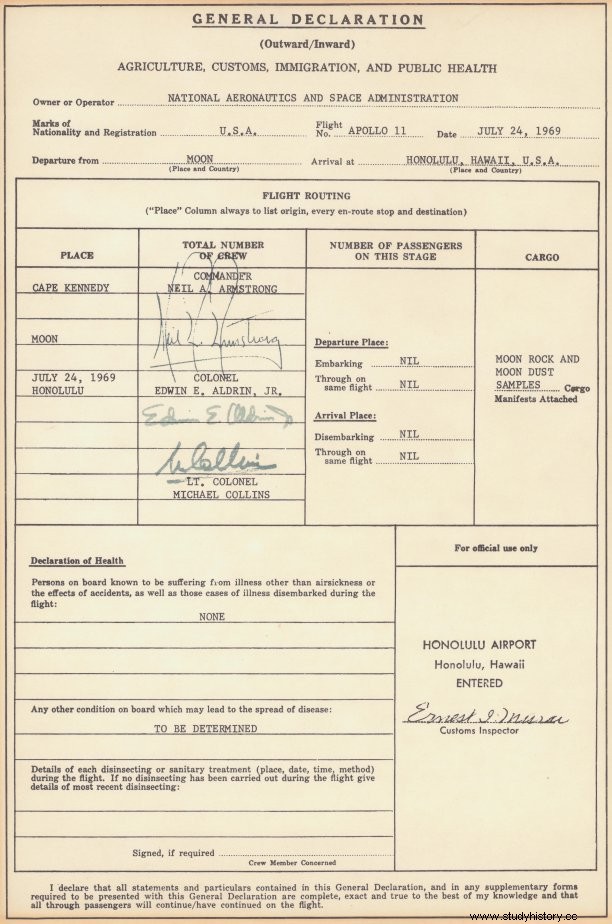 GENERAL DECLARATION
(Outward/Inward)
AGRICULTURE, CUSTOMS, IMMIGRATION, AND PUBLIC HEALTH
Owner or Operator NATIONAL AERONAUTICS AND SPACE ADMINISTRATION
Marks of
Nationality and Registration U.S.A. Flight
No. APOLLO 11 Date JULY 24, 1969
Departure from MOON Arrival at HONOLULU, HAWAII, U.S.A.
(Place and Country) (Place and Country)
FLIGHT ROUTING
("Place" Column always to list origin, every en-route stop and destination)
PLACE
TOTAL NUMBER
OF CREW
NUMBER OF PASSENGERS
ON THIS STAGE
CARGO
CAPE KENNEDY
MOON
JULY 24, 1969
HONOLULU
COMMANDER
NEIL A. ARMSTRONG
Neil A. Armstrong
COLONEL
EDWIN E. ALDRIN, JR.
Edwin E. Aldrin Jr
M Collins
LT. COLONEL
MICHAEL COLLINS
Departure Place:
Embarking NIL
Through on
same flight NIL
Arrival Place:
Disembarking NIL
Through on
same flight NIL
MOON ROCK AND
MOON DUST
SAMPLES Cargo
Manifests Attached
Declaration of Health
Persons on board known to be suffering from illness other than airsickness or
the effects of accidents, as well as those cases of illness disembarked during the
flight:
NONE
Any other condition on board which may lead to the spread of disease:
TO BE DETERMINED
Details of each disinsecting or sanitary treatment (place, date, time, method)
during the flight. If no disinsecting has been carried out during the flight give
details of most recent disinsecting:
Signed, if required
Crew Member Concerned
For official use only
HONOLULU AIRPORT
Honolulu, Hawaii
ENTERED
Ernest I. Murai
Customs Inspector
I declare that all statements and particulars contained in this General Declaration, and in any supplementary forms
required to be presented with this General Declaration are complete, exact and true to the best of my knowledge and that
all through passengers will continue/have continued on the flight.
www.studyhistory.cc